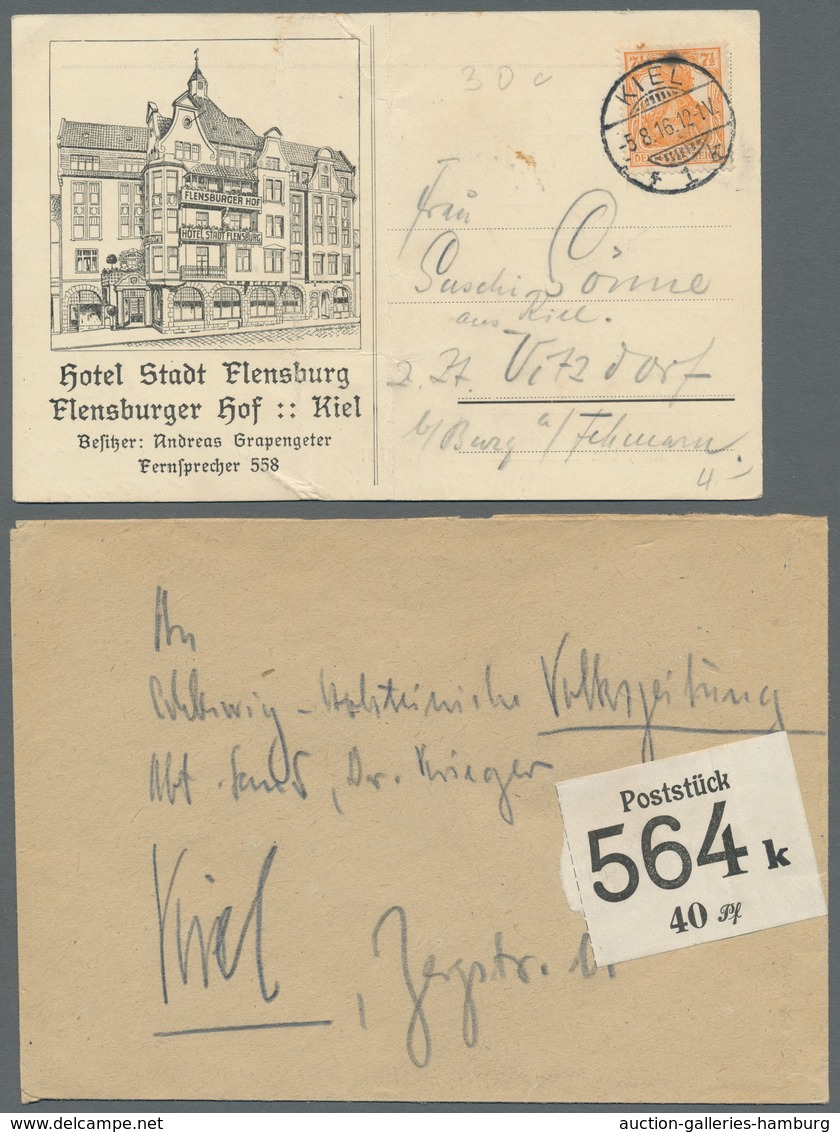 FLENSBURGER HOF
HOTEL STADT FLENSBURG
Hotel Stadt Flensburg
Flensburger Hof :: Kiel
Besitzer: Andreas Grapengeter
Fernsprecher 558
30 c
7½
KIEL
-5.8.16.12-1V.
* 1 k
Frau
Sönne
aus Kiel.
z. Zt. Vitzdorf
b/ Burg a/ Fehmarn
4.-
An
Schleswig-Holsteinische Volkszeitung
Abt. , Dr. Krieger
Kiel, Bergstr. 11
Poststück
564 k
40 Pf
auction-galleries-hamburg